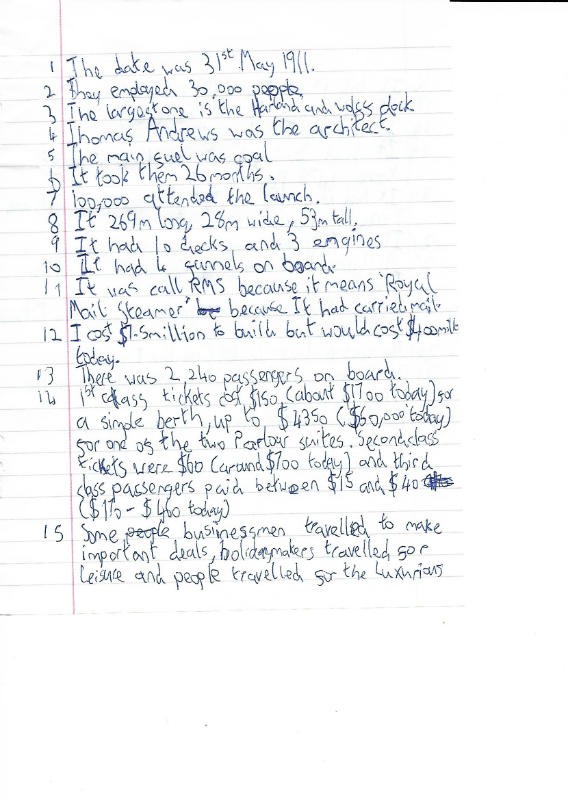 1 The date was 31st May 1911.
2 They employed 30,000 people.
3 The largest one is the Harland and wolss dock
4 Thomas Andrews was the architect.
5 The main fuel was coal
6 It took them 26 months.
7 100,000 attended the launch.
8 It 269m long, 28m wide, 53m tall.
9 It had 10 decks and 3 engines
10 It had 4 funnels on board.
11 It was call RMS because it means 'Royal
Mail Steamer' because It had carried mail.
12 I cost $7.5million to build but would cost $400
today.
13 There was 2 240 passengers on board.
14 1st class tickets cost $150 (about $1700 today) for
a simple berth, up to $4350 ($50,000 today)
for one of the two Parlour suites. Second class
tickets were $60 (around $700 today) and third
class passengers paid between $15 and $40
($170 - $460 today)
15 Some people businessmen travelled to make
important deals, holidaymakers travelled for
Leisure and people travelled for the Luxurious